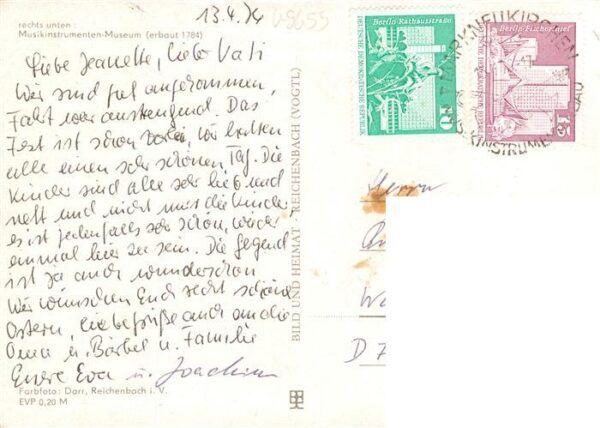 13.4.74
V8655
rechts unten:
Musikinstrumenten-Museum (erbaut 1784)
Liebe Jeanette, lieber Vati
Wir sind gut angekommen,
Fahrt war anstrengend. Das
Fest ist schon vorbei, wir hatten
alle einen sehr schönen Tag. Die
Kinder sind alle sehr lieb und
nett und nicht nur die Kinder
es ist jedenfalls sehr schön, wieder
einmal hier zu sein. Die Gegend
ist ja auch wunderschön
Wir wünschen Euch recht schöne
Ostern, liebe Grüße auch an die
Oma u. Bärbel u. Familie
Eure Eva u. Joachim
Farbfoto: Darr, Reichenbach i. V.
EVP 0,20 M
BILD UND HEIMAT · REICHENBACH (VOGTL)
Berlin-Rathausstraße
DEUTSCHE DEMOKRATISCHE REPUBLIK
10
Berlin-Fischerinsel
DEUTSCHE DEMOKRATISCHE REPUBLIK
15
MARKNEUKIRCHEN
Herrn
D 7